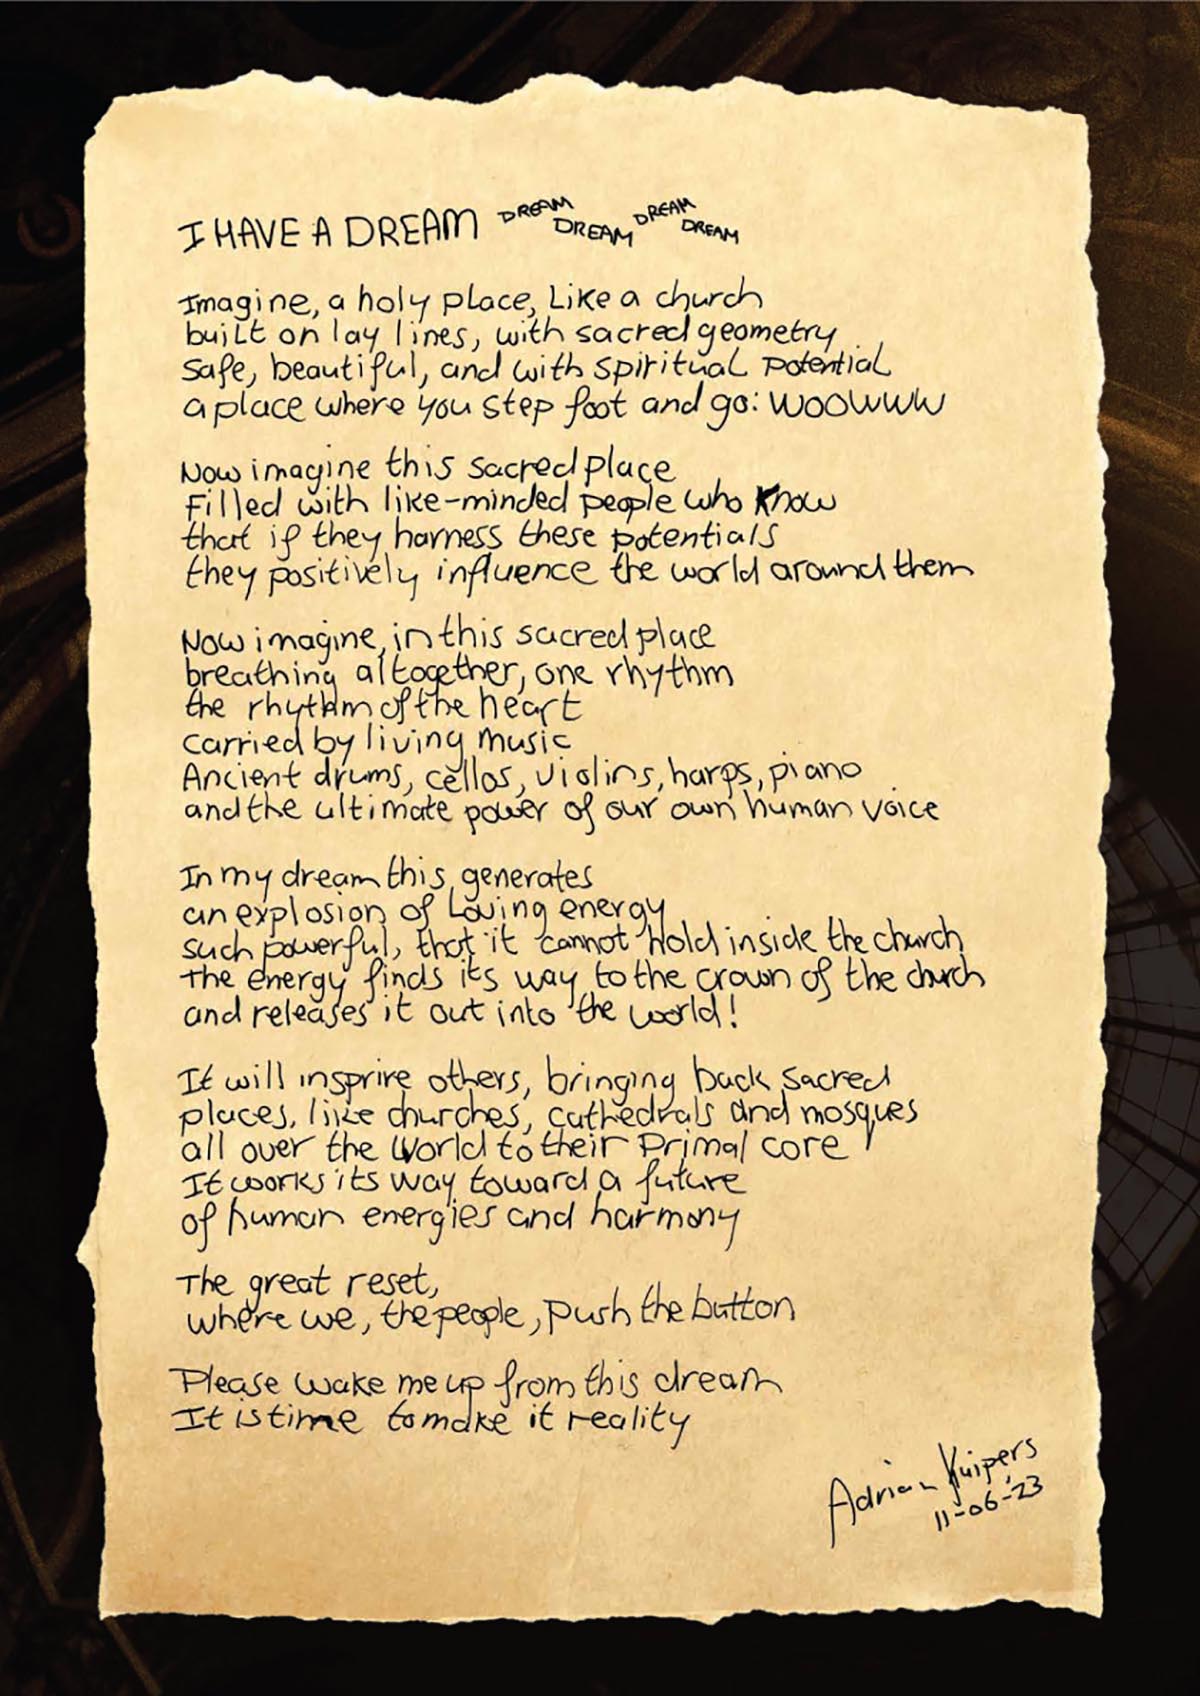 I HAVE A DREAM DREAM DREAM DREAM DREAM
Imagine, a holy place, Like a church
built on lay lines, with sacred geometry
safe, beautiful, and with spiritual potential
a place where you step foot and go: WOOWWW
Now imagine this sacred place
Filled with like-minded people who know
that if they harness these potentials
they positively influence the world around them
Now imagine, in this sacred place
breathing altogether, one rhythm
the rhythm of the heart
carried by living music
Ancient drums, cellos, violins, harps, piano
and the ultimate power of our own human voice
In my dream this generates
an explosion of Loving energy
such powerful, that it cannot hold inside the church
The energy finds its way to the crown of the church
and releases it out into the world!
It will insprire others, bringing back sacred
places, like churches, cathedrals and mosques
all over the world to their primal core
It works its way toward a future
of human energies and harmony
The great reset,
where we, the people, push the button
Please wake me up from this dream
It is time to make it reality
Adrian Kuipers
11-06-'23